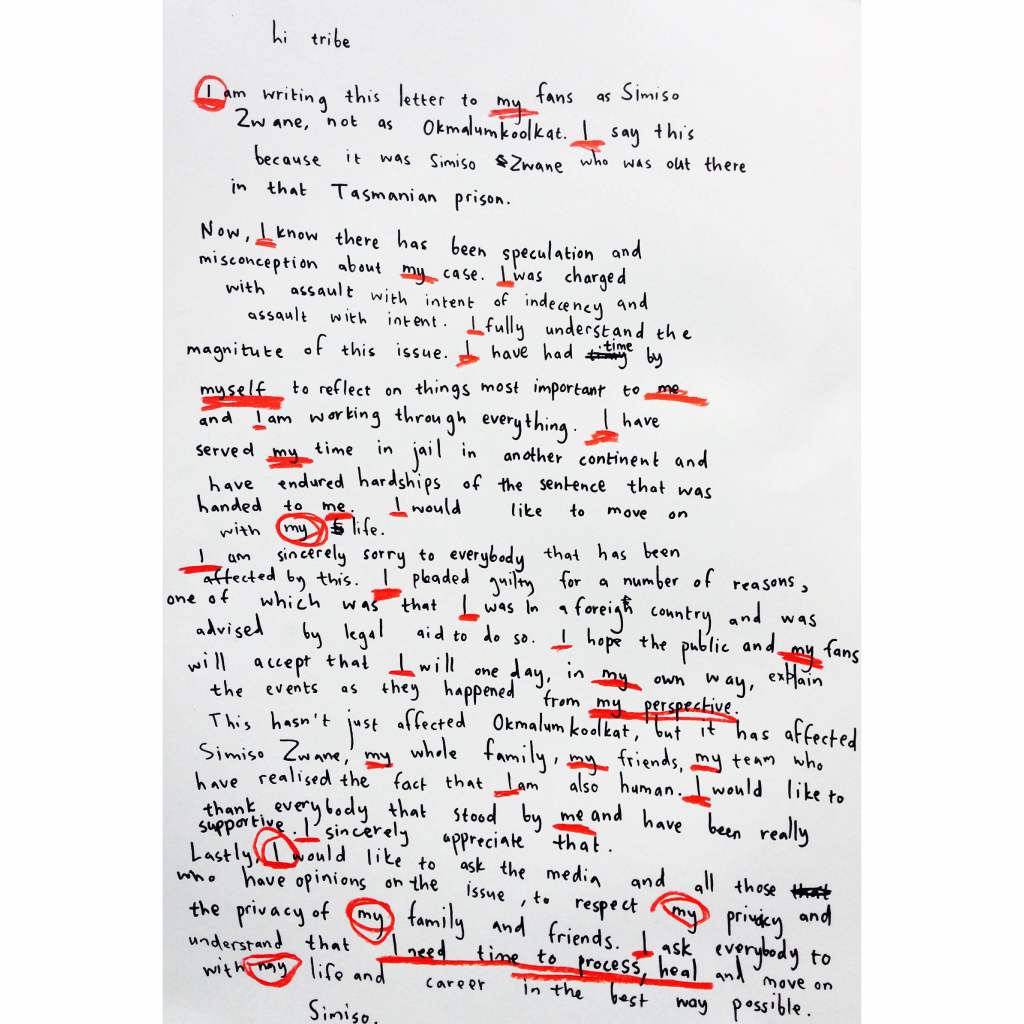 hi tribe
I am writing this letter to my fans as Simiso
Zwane, not as Okmalumkoolkat. I say this
because it was Simiso Zwane who was out there
in that Tasmanian prison.
Now, I know there has been speculation and
misconception about my case. I was charged
with assault with intent of indecency and
assault with intent. I fully understand the
magnitute of this issue. I have had time by
myself to reflect on things most important to me
and I am working through everything. I have
served my time in jail in another continent and
have endured hardships of the sentence that was
handed to me. I would like to move on
with my life.
I am sincerely sorry to everybody that has been
affected by this. I pleaded guilty for a number of reasons,
one of which was that I was In a foreign country and was
advised by legal aid to do so. I hope the public and my fans
will accept that I will one day, in my own way, explain
the events as they happened from my perspective.
This hasn't just affected Okmalumkoolkat, but it has affected
Simiso Zwane, my whole family, my friends, my team who
have realised the fact that I am also human. I would like to
thank everybody that stood by me and have been really
supportive. I sincerely appreciate that.
Lastly, I would like to ask the media and all those
who have opinions on the issue, to respect my privacy and
the privacy of my family and friends. I ask everybody to
understand that I need time to process, heal and move on
with my life and career in the best way possible.
Simiso.